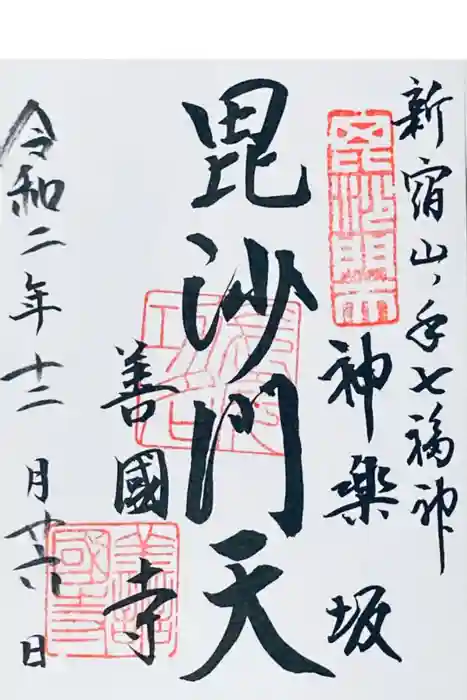 新宿山ノ手七福神
毘沙門天
神楽坂
毘沙門天
善國寺
令和二年十二月廿六日